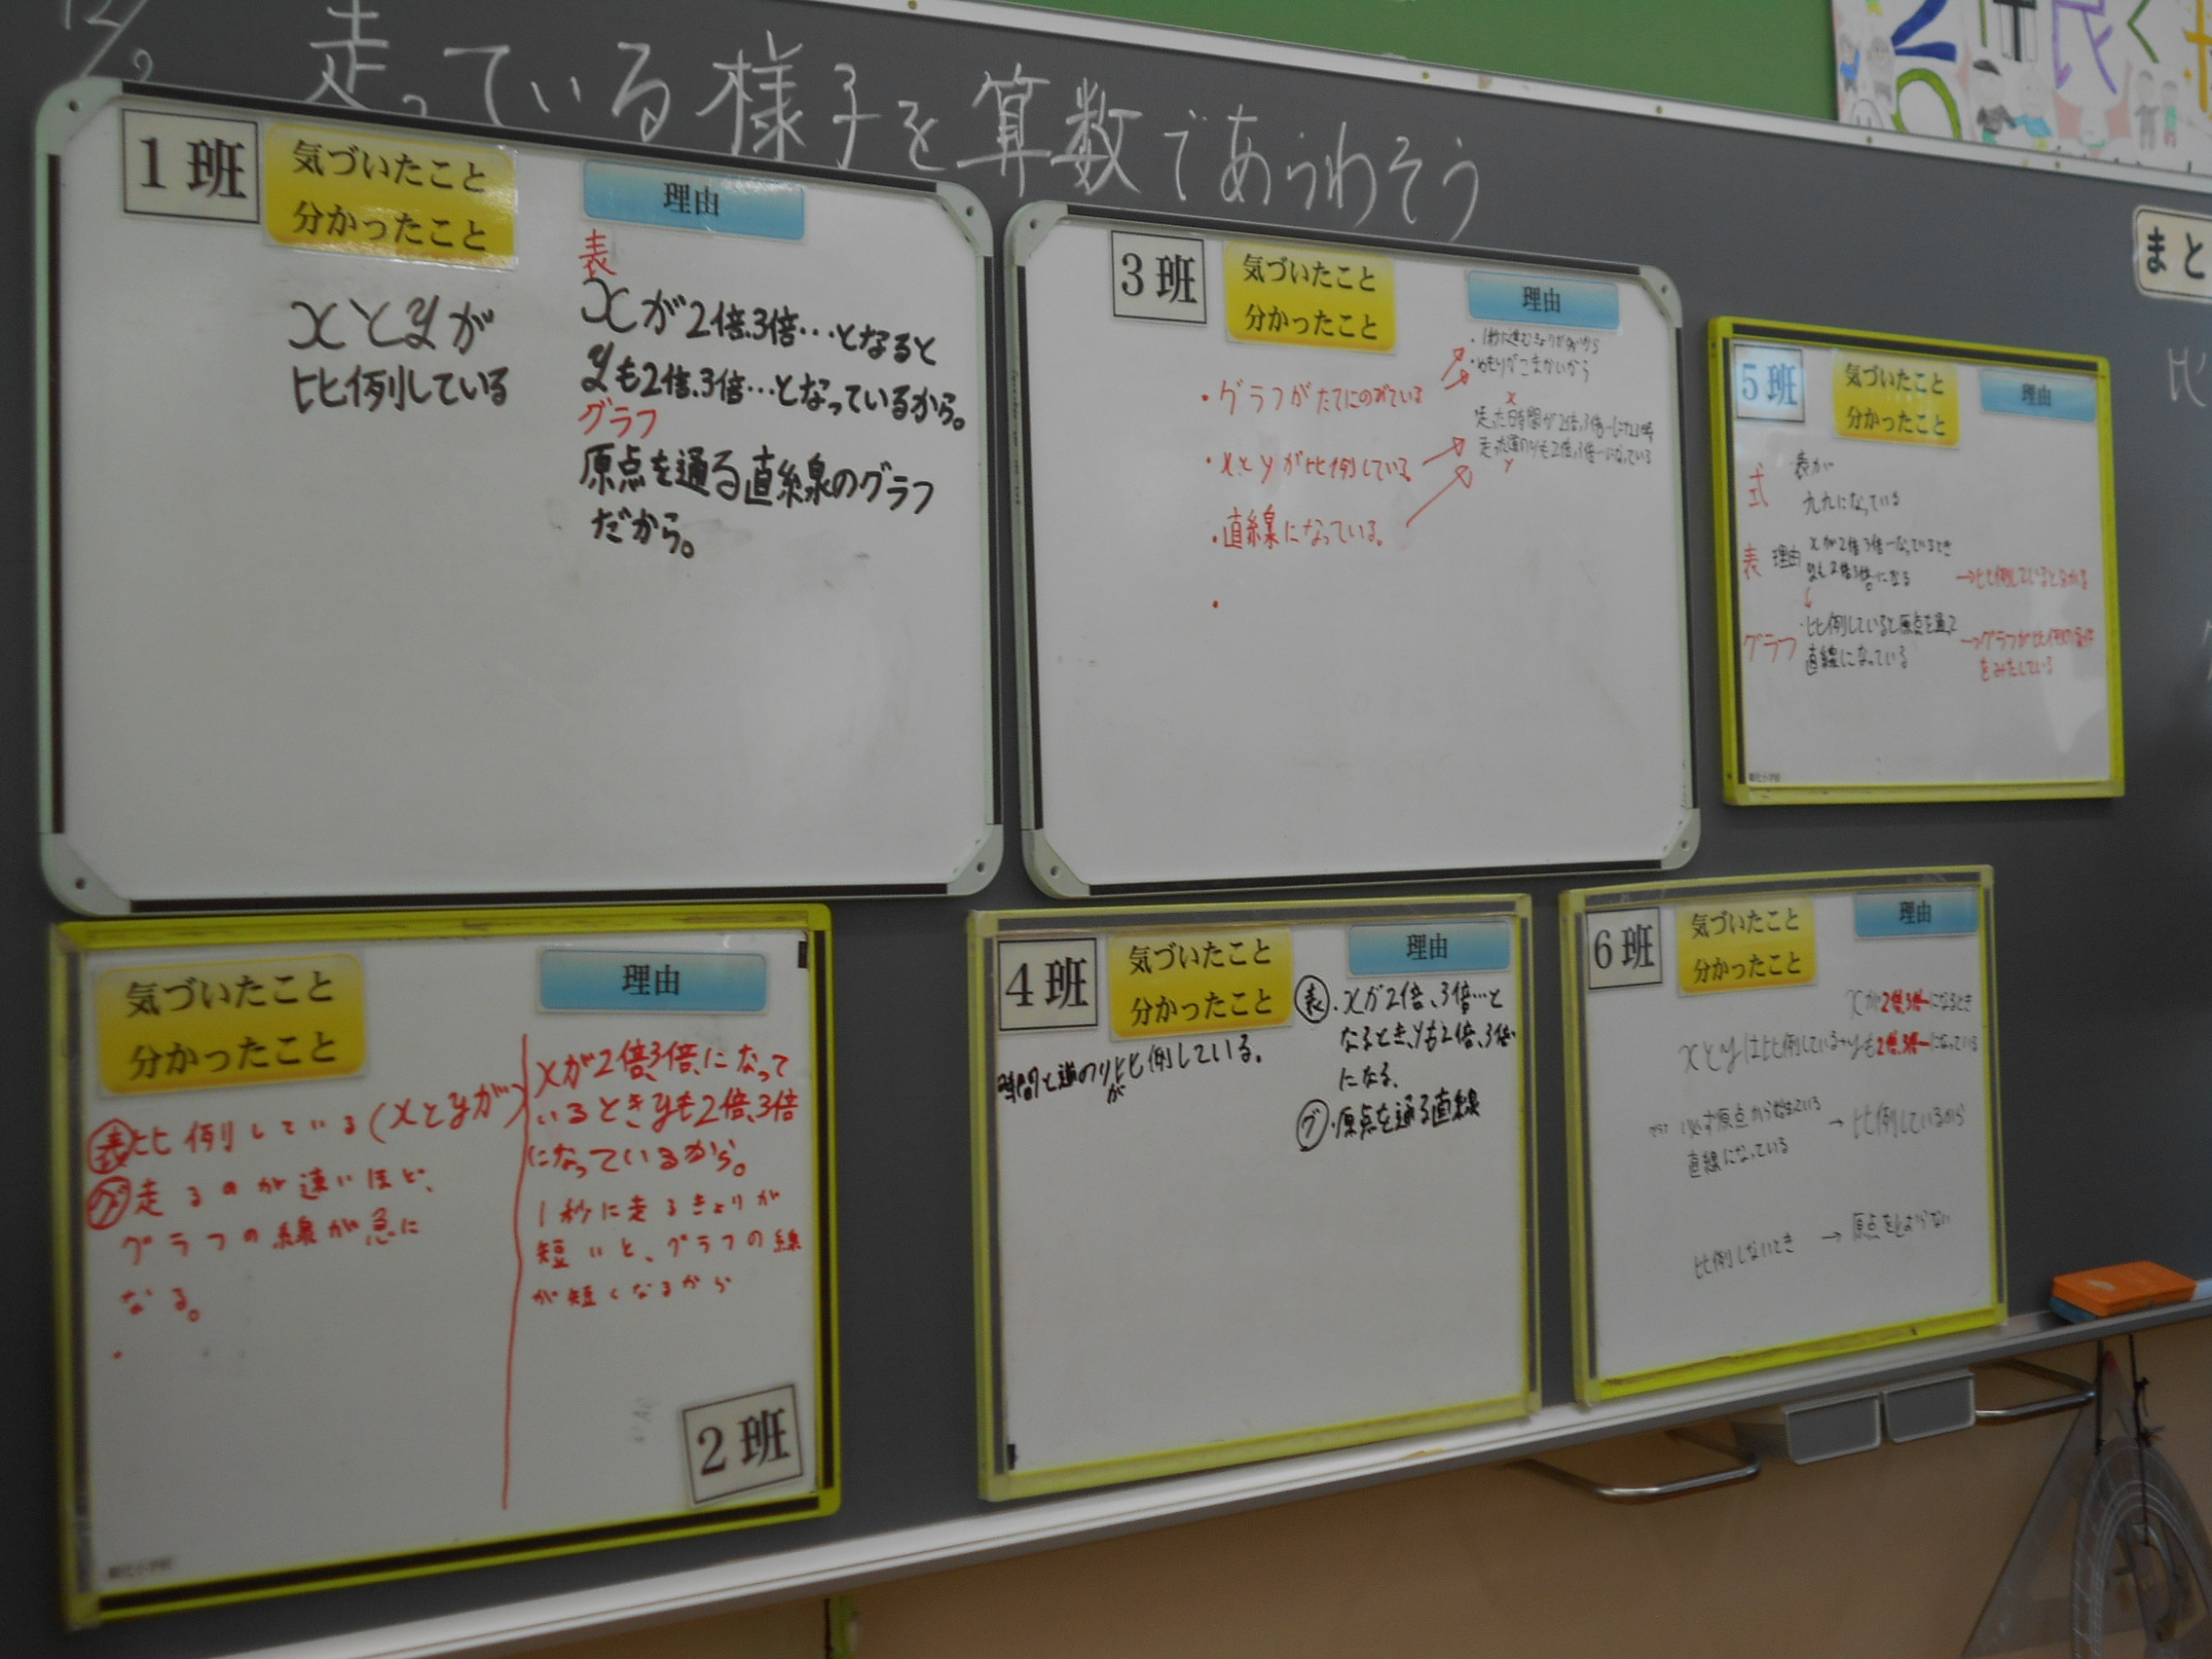 走っている様子を算数であらわそう
1班
気づいたこと
分かったこと
理由
xとyが
比例している
表
xが2倍、3倍…となると
yも2倍、3倍…となっているから。
グラフ
原点を通る直線のグラフ
だから。
3班
気づいたこと
分かったこと
理由
・グラフがたてにのびている
・xとyが比例している
・直線になっている。
・
・めもりがこまかいから
x
走った時間が2倍、3倍…になる時
走った道のりも2倍、3倍…になっている
y
5班
気づいたこと
分かったこと
理由
式
・表が
九九になっている
表 理由
xが2倍3倍…なっているとき
yも2倍3倍になる
→比例していると分かる
グラフ
・比例していると原点を通って
直線になっている
→グラフが比例の条件
をみたしている
まと
比
気づいたこと
分かったこと
理由
表 比例している(xとyが)
グ 走るのが速いほど、
グラフの線が急に
なる。
・
xが2倍、3倍、になって
いるときyも2倍、3倍
になっているから。
1秒に走るきょりが
短いと、グラフの線
が短くなるから
2班
4班
気づいたこと
分かったこと
理由
時間と道のりが比例している。
表・xが2倍、3倍…と
なるとき、yも2倍、3倍
になる。
グ・原点を通る直線
6班
気づいたこと
分かったこと
理由
xが2倍、3倍…になるとき
xとyは比例している→yも2倍、3倍…になっている
グラフ 必ず原点から始まっている
直線になっている
→比例しているから
比例しないとき → 原点をとおらない